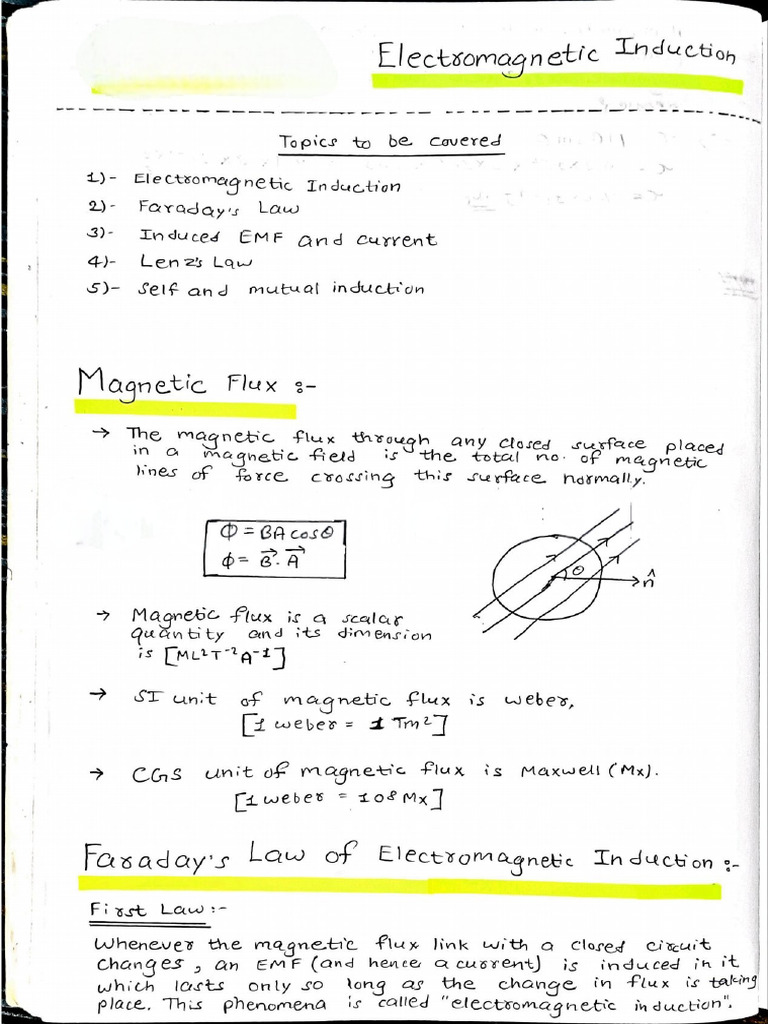 Electromagnetic Induction
Topics to be covered
1)- Electromagnetic Induction
2)- Faraday's Law
3)- Induced EMF and current
4)- Lenz's Law
5)- Self and mutual induction
Magnetic Flux :-
→ The magnetic flux through any closed surface placed
in a magnetic field is the total no. of magnetic
lines of force crossing this surface normally.
Φ = BA cosθ
ϕ = B⃗. A⃗
θ
n̂
→ Magnetic flux is a scalar
quantity and its dimension
is [ML²T⁻²A⁻¹]
→ SI unit of magnetic flux is weber,
[1 weber = 1 Tm²]
→ CGS unit of magnetic flux is Maxwell (Mx).
[1 weber = 108 Mx]
Faraday's Law of Electromagnetic Induction :-
First Law :-
Whenever the magnetic flux link with a closed circuit
changes, an EMF (and hence a current) is induced in it
which lasts only so long as the change in flux is taking
place. This phenomena is called "electromagnetic induction".